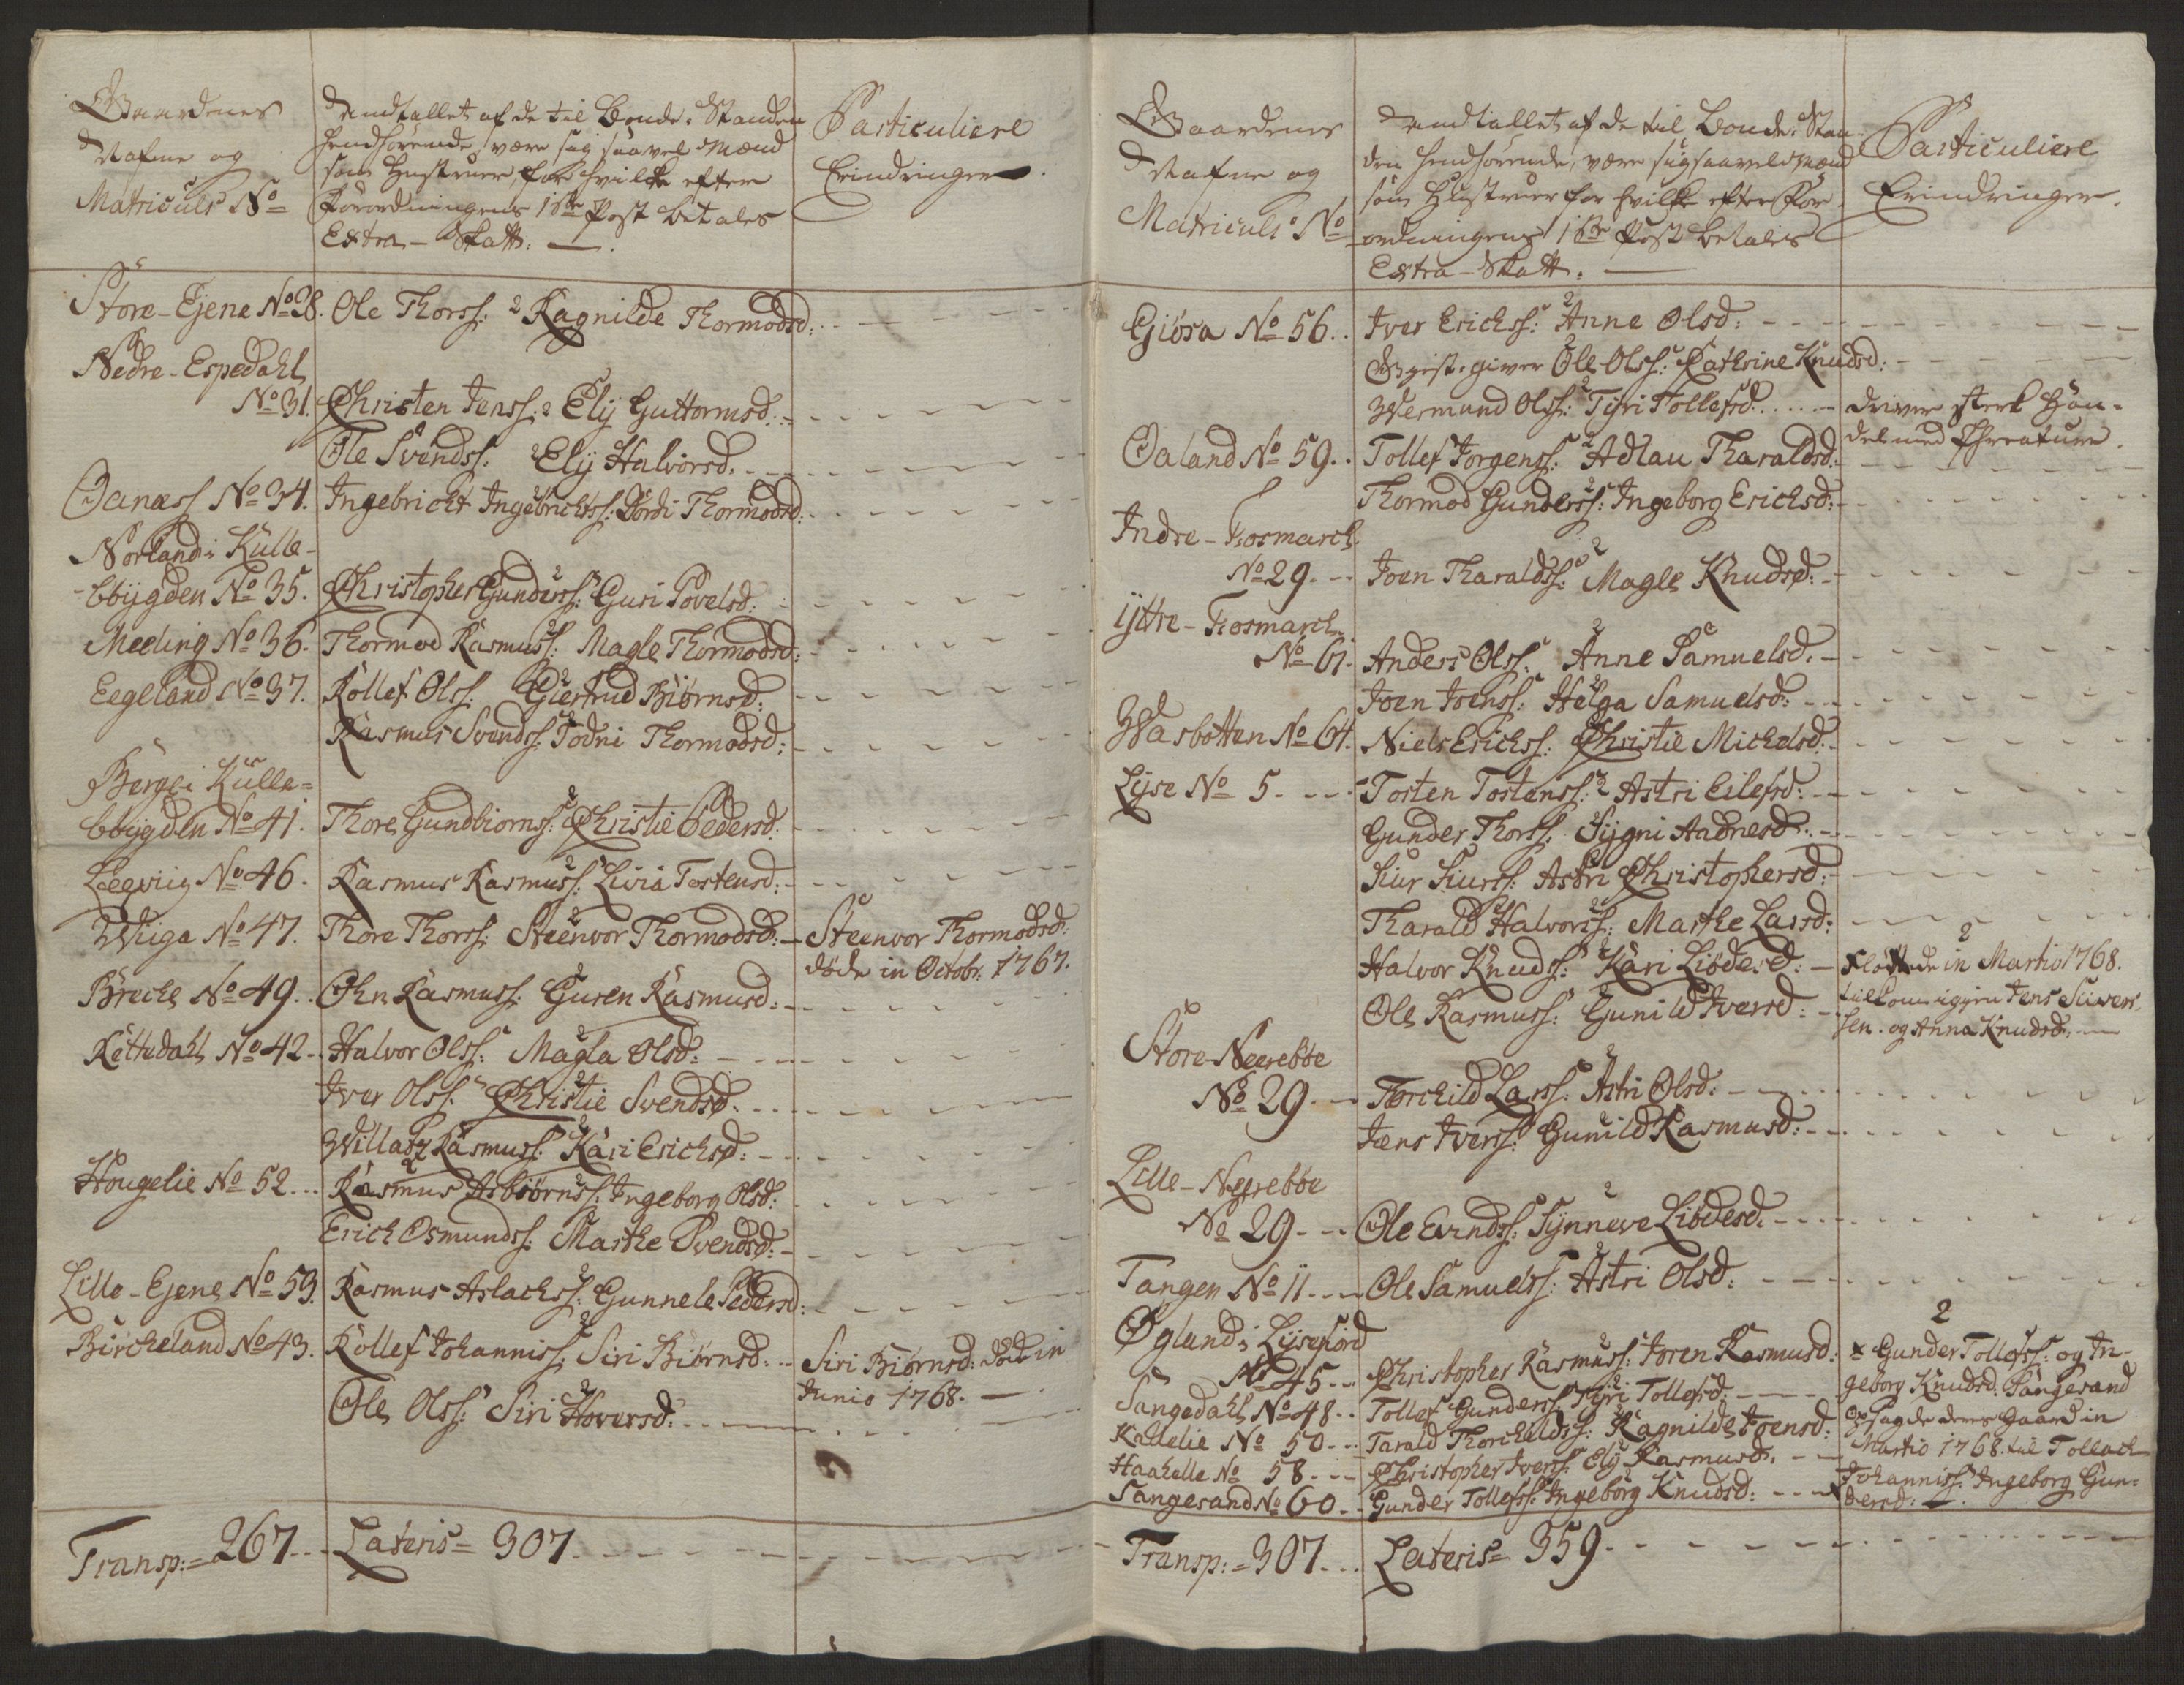 Gaardenes
Nafne og
Matriculs No
Andtallet af de til Bonde-Standen
henhörende, være sig saavel Mænd
som Hustruer, for hvilke efter
Forordningens 1ste Post betales
Extra-Skatt. —
Particuliere
Erindringer.
Store-Ejene No 28. Ole Thorss: 2 Ragnilde Thormodsd:
Nedre-Espedahl
No 31. Christen Jenss: 2 Elij Guttormsd:
Ole Svendss: 2 Elij Halvorsd.
Oaness No 34. Ingebricht Ingebrichtss: 2 Gordi Thormodsd:
Norland i Kulle-
bbijgden No 35. Christopher Gunderss: 2 Guri Povelsd:
Meeling No 36. Thormod Rasmuss: 2 Magle Thormodsd:
Eegeland No 37. Rollef Olss: 2 Giertrud Biörnsd:
Rasmus Svendss: 2 Todni Thormodsd:
Berge i Kulle=
bbijgden No 41. Thore Gundbiornss: 2 Christie Pedersd:
Leegviig No 46. Rasmus Rasmuss: 2 Livia Tostensd:
Wiiga No 47. Thore Thorss: 2 Steenvor Thormodsd: — Steenvor Thormodsd:
döde in Octobr: 1767.
Breche No 49. Ohn Rasmuss: 2 Guren Rasmusd:
Röttedahl No 42. Halvor Olss: 2 Magla Olsd:
Iver Olss: 2 Christie Svendsd.
Willatz Rasmuss: 2 Kari Erichsd:
Hougelie No 52. Rasmus Asbiörnss: 2 Ingeborg Olsd:
Erich Osmundss: 2 Marthe Svendsd:
Lille-Ejene No 59. Rasmus Aslachss: 2 Gunnele Pedersd:
Bircheland No 43. Rollef Johanniss: 2 Siri Biörnsd: Siri Biörnsd: död in
Junio 1768. —
Ole Olss: 2 Siri Hoversd:
Transp:= 267. Lateris= 307.
Gaardenes
Nafne og
Matriculs No
Andtallet af de til Bonde-Stan-
den henhörende, være sig saavel Mænd
som Hustruer for hvilke efter For-
ordningens 1ste Post betales
Extra-Skatt. —
Particuliere
Erindringer.
Giösa No 56. Iver Erichss: 2 Anne Olsd:
Giest-giver Ole Olss: 2 Cathrine Knudsd:
Wermund Olss: 2 Tyri Tollefsd. driver sterk Han-
del med Creature.
Oaland No 59. Tollef Jorgenss: 2 Adlau Tharaldsd:
Thormod Gunderss: 2 Ingeborg Erichsd:
Indre-Fosmarch
No 29. Joen Tharaldss: 2 Magle Knudsd:
ijttre-Fosmarch
No 61. Anders Olss: 2 Anne Samuelsd.
Joen Joenss: 2 Helga Samuelsd:
Wasbotten No 64. Niels Erichss: 2 Christie Michelsd:
Lijse No 5. Tosten Tostenss: 2 Astri Eilefsd:
Gunder Thorss: 2 Sijgni Aadnesd:
Siur Siurss: 2 Astri Christophersd:
Tharald Halvorss: 2 Marthe Larsd:
Halvor Knudss: 2 Kari Liödesd: — 2 flöttede in Martio 1768.
Ole Rasmuss: 2 Gunild Iversd: tilkom igien Jens Siver-
sen. og Anna Knudsd:
Store-Neereböe
No 29. Torchild Larss: 2 Astri Olsd:
Jens Iverss: 2 Gunild Rasmusd:
Lille-Neerebøe
No 29. Ole Evindss: 2 Sijnneve Liödesd:
Tangen No 11. Ole Samuelss: 2 Astri Olsd:
Øgland i Lijsefiord
No 45. Christopher Rasmuss: 2 Joren Rasmusd:
2 x Gunder Tollefss: og In-
geborg Knudsd: Sangesand
Sangedahl No 48. Tollef Gunderss: 2 Tyri Tollefsd: Opsagde deres Gaard in
Kallelie No 50. Tarald Thorchildss: 2 Ragnilde Joensd: Martio 1768. til Tollach
Haahelle No 58. Christopher Iverss: 2 Elij Rasmusd: Johanniss: Ingeborg Gun-
Sangesand No 60. Gunder Tollefss: 2 Ingeborg Knudsd: x dersd:
Transp:= 307. Lateris= 359.